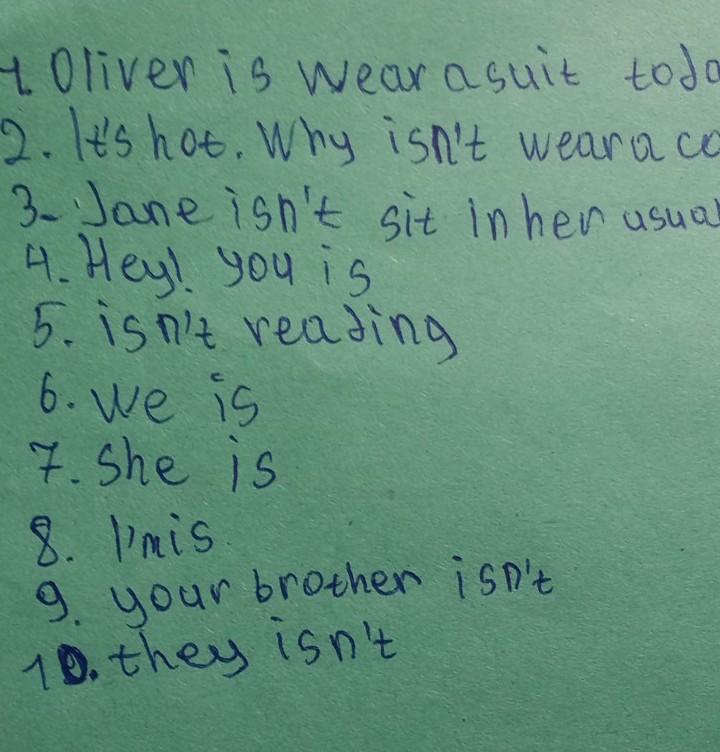 1. Oliver is wear a suit toda
2. It's hot. Why isn't wear a co
3. Jane isn't sit in her usual
4. Hey! you is
5. isn't reading
6. we is
7. she is
8. I'm is
9. your brother isn't
10. they isn't